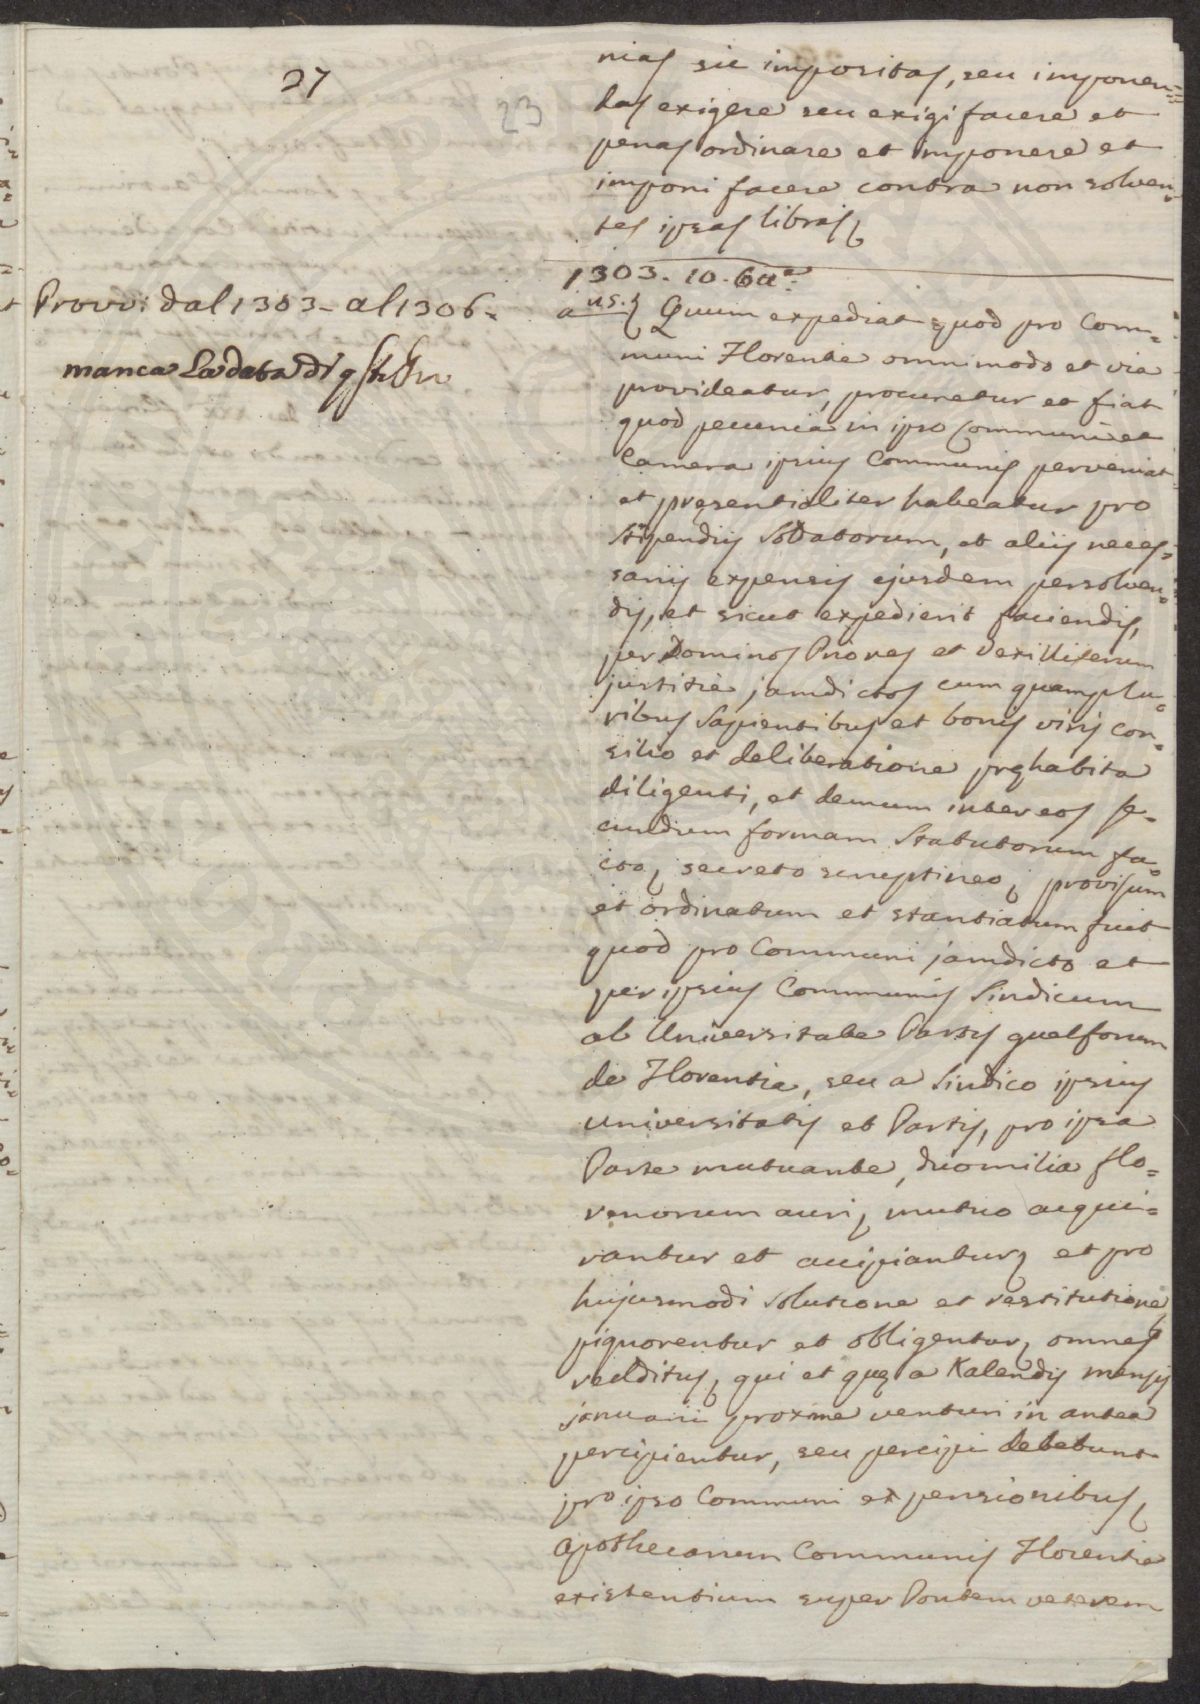 27
23
nias sic impositas, seu imponen=
das exigere seu exigi facere et
penas ordinare et imponere et
imponi facere contra non solven=
tes ipsas libras,
1303. 10. 6a:
Provv: dal 1303 - al 1306.
manca La data di
Quum expediat quod pro Com=
muni Florentie omni modo et via
provideatur, procuretur et fiat
quod pecunia in ipso Communi et
Camera ipsius Communis perveniat
et presentialiter habeatur pro
stipendijs Soldatorum, et alijs neces=
sarijs expensis ejusdem persolven=
dis, et sicut expedierit faciendis,
per Dominos Priores et Vexilliferum
justitie jamdictos cum quamplu=
ribus Sapientibus et bonis viris con=
silio et deliberatione prehabita
diligenti, et demum inter eos se=
cundum formam Statutorum fa=
cto, secreto scruptineo, provisum
et ordinatum et stantiatum fuit
quod pro Communi jamdicto et
per ipsius Communis Sindicum
ab Universitate Partis guelforum
de Florentia, seu a Sindico ipsius
universitatis et Partis, pro ipsa
Parte mutuante, duomilia flo=
renorum auri, mutuo acqui=
rantur et accipiantur, et pro
hujusmodi solutione et restitutione
pignorentur et obligentur, omnes
redditus, qui et que a Kalendis mensis
januarii proxime venturi in antea
percipientur, seu percipi debebunt
pro ipso Communi ex pensionibus,
apothecarum Communis Florentie
existentium super Pontem veterem